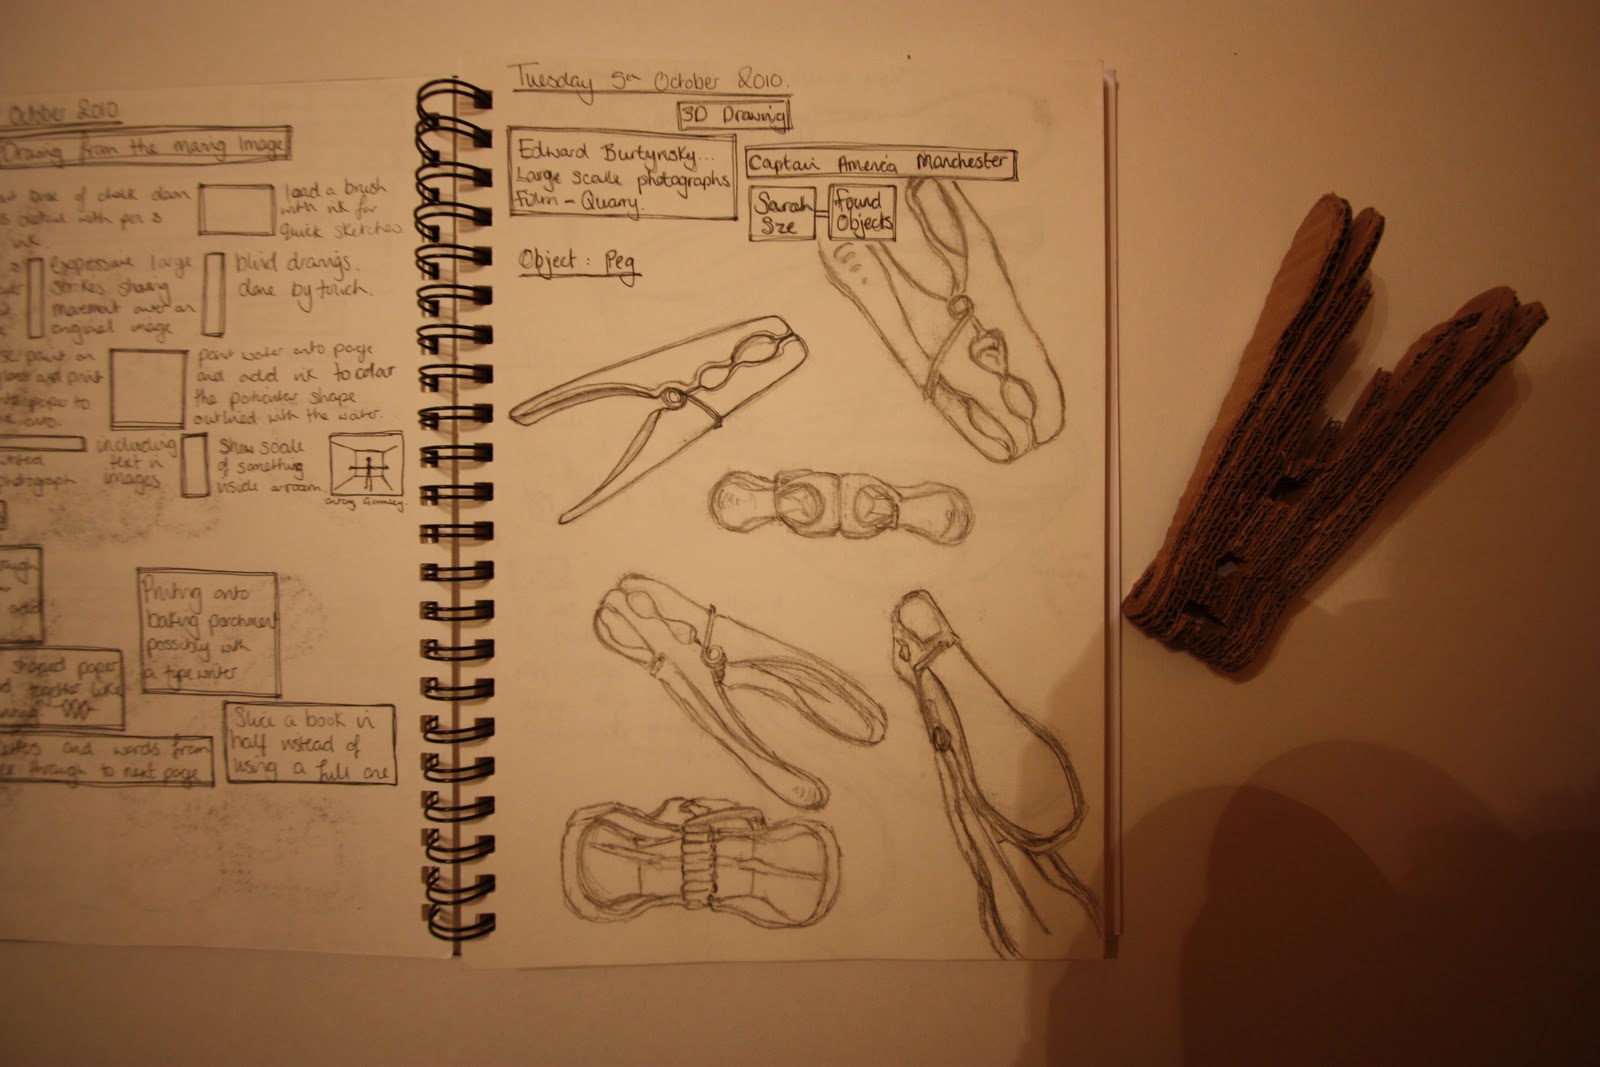 October 2010
Drawing from the moving Image
of chalk down
with pen &
ink.
load a brush
with ink for
quick sketches
expressive large
strokes showing
movement over an
original image
blind drawings.
done by touch.
paint on
and print
paper to
paint water onto page
and add ink to colour
the particular shape
outlined with the water.
photograph
including
text in
images
Show scale
of something
inside a room.
Gormley.
Printing onto
baking parchment
possibly with
a typewriter
shaped paper
together like
and words from
through to next page
Slice a book in
half instead of
using a full one
Tuesday 5th October 2010.
3D Drawing
Edward Burtynsky...
Large scale photographs
Film - Quarry.
Captain America Manchester
Sarah
Sze
Found
Objects
Object : Peg